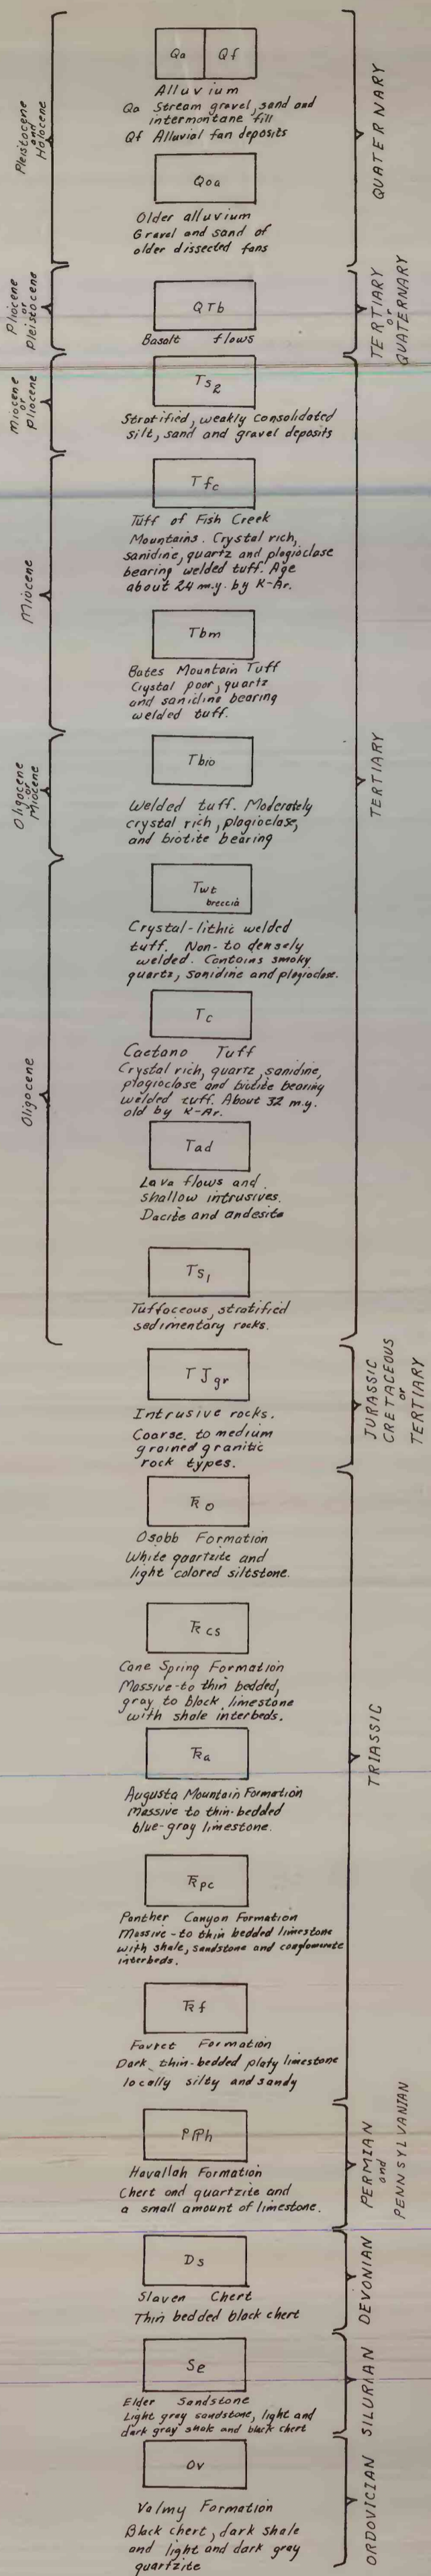 Qa Qf
Alluvium
Qa Stream gravel, sand and
intermontane fill
Qf Alluvial fan deposits
Pleistocene
and
Holocene
QUATERNARY
Qoa
Older alluvium
Gravel and sand of
older dissected fans
Pliocene
or
Pleistocene
QTb
Basalt flows
TERTIARY
or
QUATERNARY
Miocene
or
Pliocene
Ts2
Stratified, weakly consolidated
silt, sand and gravel deposits
Tfc
Tuff of Fish Creek
Mountains. Crystal rich,
sanidine, quartz and plagioclase
bearing welded tuff. Age
about 24 m.y. by K-Ar.
Miocene
Tbm
Bates Mountain Tuff
Crystal poor, quartz
and sanidine bearing
welded tuff.
Oligocene
or
Miocene
Tbio
Welded tuff. Moderately
crystal rich, plagioclase,
and biotite bearing
TERTIARY
Twt
breccia
Crystal-lithic welded
tuff. Non- to densely
welded. Contains smoky
quartz, sanidine and plagioclase.
Tc
Caetano Tuff
Crystal rich, quartz, sanidine,
plagioclase and biotite bearing
welded tuff. About 32 m.y.
old by K-Ar.
Oligocene
Tad
Lava flows and
shallow intrusives.
Dacite and andesite
Ts1
Tuffaceous, stratified
sedimentary rocks.
TJgr
Intrusive rocks.
Coarse to medium
grained granitic
rock types.
JURASSIC
CRETACEOUS
or
TERTIARY
TRo
Osobb Formation
White quartzite and
light colored siltstone.
TRcs
Cane Spring Formation
Massive-to thin bedded,
gray to black limestone
with shale interbeds.
TRa
Augusta Mountain Formation
Massive to thin-bedded
blue-gray limestone.
TRIASSIC
TRpc
Panther Canyon Formation
Massive-to thin bedded limestone
with shale, sandstone and conglomerate
interbeds.
TRf
Favret Formation
Dark, thin-bedded platy limestone
locally silty and sandy
PIPh
Havallah Formation
Chert and quartzite and
a small amount of limestone.
PERMIAN
and
PENNSYLVANIAN
Ds
Slaven Chert
Thin bedded black chert
DEVONIAN
Se
Elder Sandstone
Light gray sandstone, light and
dark gray shale and black chert
SILURIAN
Ov
Valmy Formation
Black chert, dark shale
and light and dark gray
quartzite
ORDOVICIAN